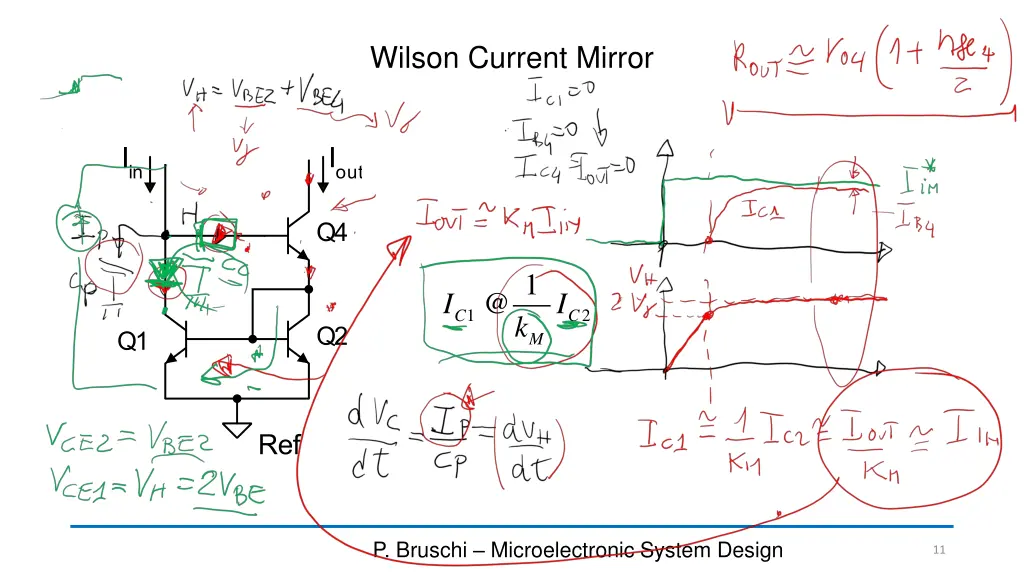 Wilson Current Mirror
R_OUT ≅ r_04 (1 + h_fe4 / 2)
V_H = V_BE2 + V_BE4
V_γ
V_γ
I_C1 = 0
I_B4 = 0
I_C4 = I_OUT = 0
I_in
I_out
H
Q4
I_P
C_P
Q1
Q2
Ref
I_OUT ≅ K_M I_IN
I_C1 @ 1/k_M I_C2
I_IN
I_C1
I_B4
V_H
2 V_γ
V_CE2 = V_BE2
V_CE1 = V_H = 2V_BE
dV_C/dT = I_P/C_P = (dV_H/dT)
I_C1 ≅ 1/K_M I_C2 ≅ I_OUT/K_M ≅ I_IN
P. Bruschi – Microelectronic System Design
11